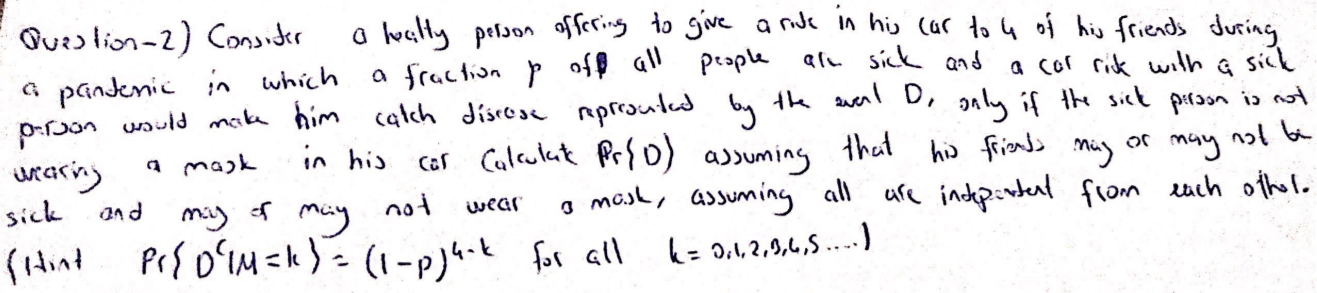 Question-2) Consider a healty person offering to give a ride in his car to 4 of his friends during
a pandemic in which a fraction p of all people are sick and a car ride with a sick
person would make him catch disease represented by the event D, only if the sick person is not
wearing a mask in his car Calculate Pr{D} assuming that his friends may or may not be
sick and may or may not wear a mask, assuming all are independent from each other.
(Hint Pr{D^c|M=k} = (1-p)^{4-k} for all k= 0,1,2,3,4,5....)